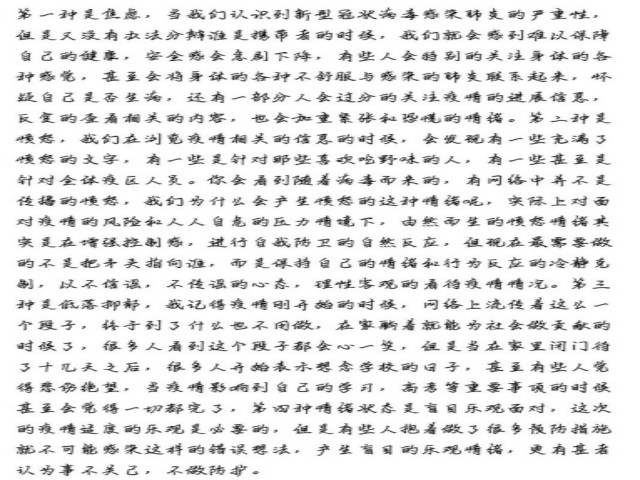 第一种是焦虑，当我们认识到新型冠状病毒感染肺炎的严重性，
但是又没有办法分辨谁是携带者的时候，我们就会感到难以保障
自己的健康，安全感会急剧下降，有些人会特别的关注身体的各
种感觉，甚至会将身体的各种不舒服与感染的肺炎联系起来，怀
疑自己是否生病，还有一部分人会过分的关注疫情的进展信息，
反复的查看相关的内容，也会加重紧张和恐慌的情绪。第二种是
愤怒，我们在浏览疫情相关的信息的时候，会发现有一些充满了
愤怒的文字，有一些是针对那些喜欢吃野味的人，有一些甚至是
针对全体疫区人员。你会看到随着病毒而来的，有网络中并不是
传播的愤怒，我们为什么会产生愤怒的这种情绪呢，实际上对面
对疫情的风险和人人自危的压力情境下，由然而生的愤怒情绪其
实是在增强控制感，进行自我防卫的自然反应，但现在最需要做
的不是把矛头指向谁，而是保持自己的情绪和行为反应的冷静克
制，以不信误，不传误的心态，理性客观的看待疫情情况。第三
种是低落抑郁，我记得疫情刚开始的时候，网络上流传着这么一
个段子，终于到了什么也不用做，在家躺着就能为社会做贡献的
时候了，很多人看到这个段子都会心一笑，但是当在家里闭门待
了十几天之后，很多人开始表示想念学校的日子，甚至有些人觉
得悲伤绝望，当疫情影响到自己的学习，高考等重要事项的时候
甚至会觉得一切都完了，第四种情绪状态是盲目乐观面对，这次
的疫情适度的乐观是必要的，但是有些人抱着做了很多预防措施
就不可能感染这样的错误想法，产生盲目的乐观情绪，更有甚者
认为事不关己，不做防护。